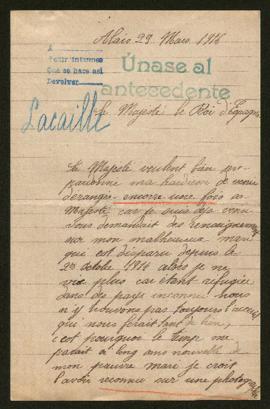 Alais 29 Mars 1916
A
Pedir informes
Que se hace así
Devolver
Únase al
antecedente
Sa Majesté le Roi d'Espagne
Lacaille
Sa Majesté veuillent bien
pardonne ma hardiesse de venir
déranger encore une fois sa
Majesté car je suis déja venu
Vous demandait des renseignements
sur mon malheureux mari
qui est disparu depuis le
octobre 1914 alors je ne
vie plus car étant réfugiée
dans des pays inconnu nous
n'y trouvons pas toujours l'accueil
qui nous ferait tant de bien,
c'est pourquoi le temp me
parait si long sans nouvelle de
mon pauvre mari je croit
l'avoir reconnu sur une photographie